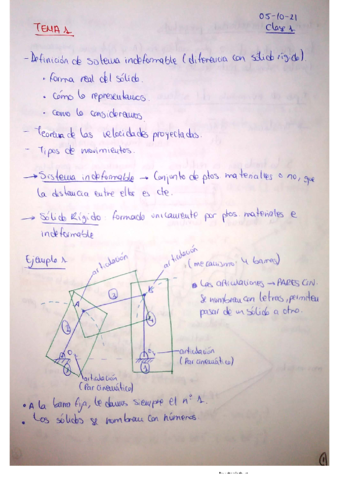 05-10-21
TEMA 1. Clase 1
- Definición de sistema indeformable (diferencia con sólido rígido)
• forma real del sólido.
• cómo lo representamos
• como lo consideramos
- Teorema de las velocidades proyectadas.
- Tipos de movimientos.
→ Sistema indeformable → Conjunto de ptos materiales o no, que
la distancia entre ellos es cte.
→ Sólido Rígido formado unicamente por ptos materiales e
indeformable
Ejemplo 1
articulación
articulación
(mecanismo: 4 barras)
• Las articulaciones → PARES CIN.
Se nombran con letras, permiten
pasar de un sólido a otro.
A
B
3
2
4
O
1
1
articulación
(Par cinemático)
articulación
(Par cinemático)
• A la barra fija, le damos siempre el nº 1.
• Los sólidos se nombran con números.